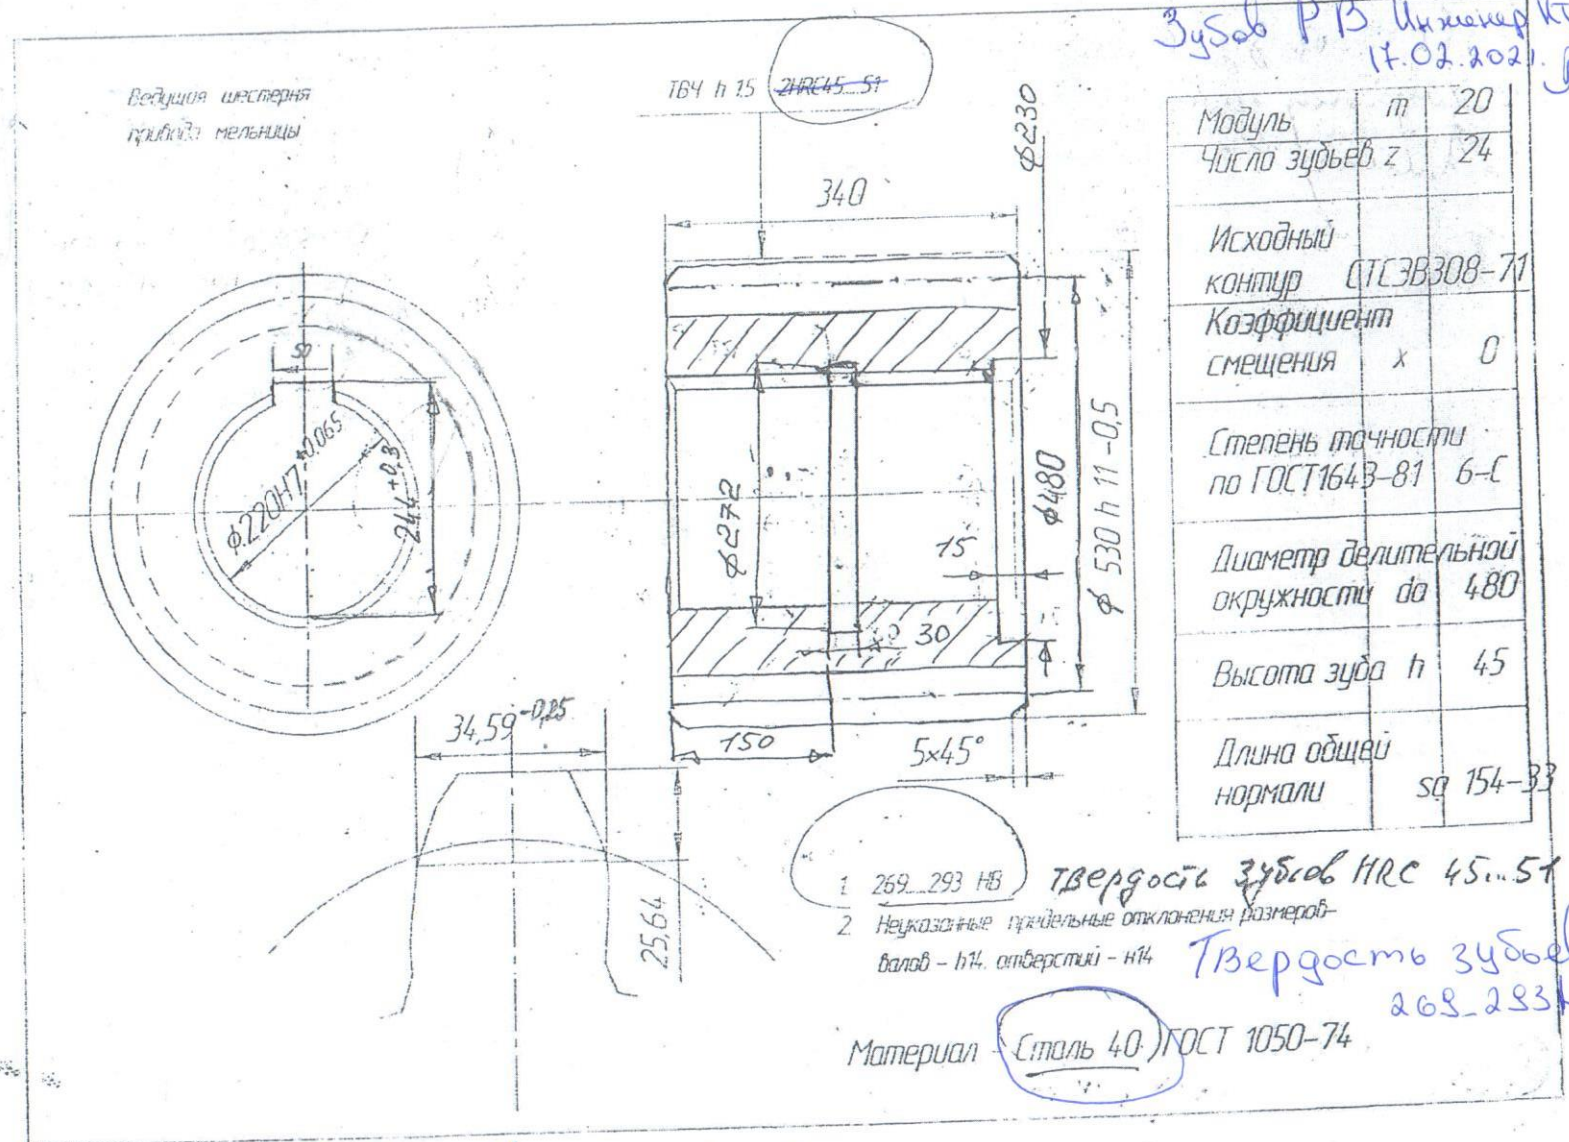 Зубов Р В Инженер
17.02.2021.
Ведущия шестерня
привода мельницы
ТВЧ h 15 2HRC45...51
ϕ230
340
50
ϕ220H7+0,065
244+0,3
ϕ272
15
30
ϕ480
ϕ 530 h 11 -0,5
150
5x45°
34,59-0,25
25,64
Модуль m 20
Число зубьев z 24
Исходный
контур СТСЭВ308-71
Коэффициент
смещения x 0
Степень точности
по ГОСТ1643-81 6-С
Диаметр делительной
окружности da 480
Высота зуба h 45
Длина общей
нормали sa 154-33
1. 269...293 HB Твердость зубьев HRC 45...51
2. Неуказанные предельные отклонения размеров-
валов - h14. отверстий - н14
Твердость зубьев
269-293
Материал - Сталь 40 ГОСТ 1050-74